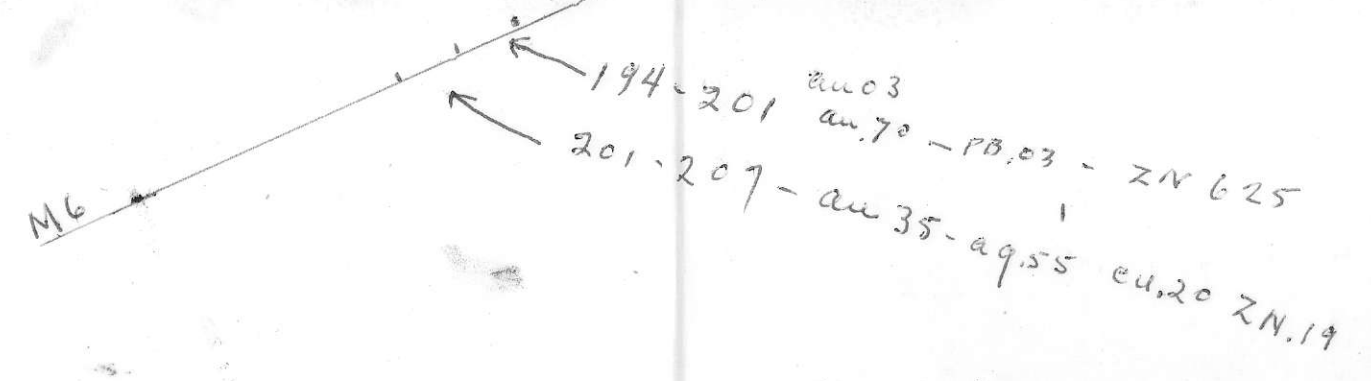 au 03
194-201 au.70 - PB.03 - ZN 625
201-207 - au 35 - ag.55 cu.20 ZN.19
M6